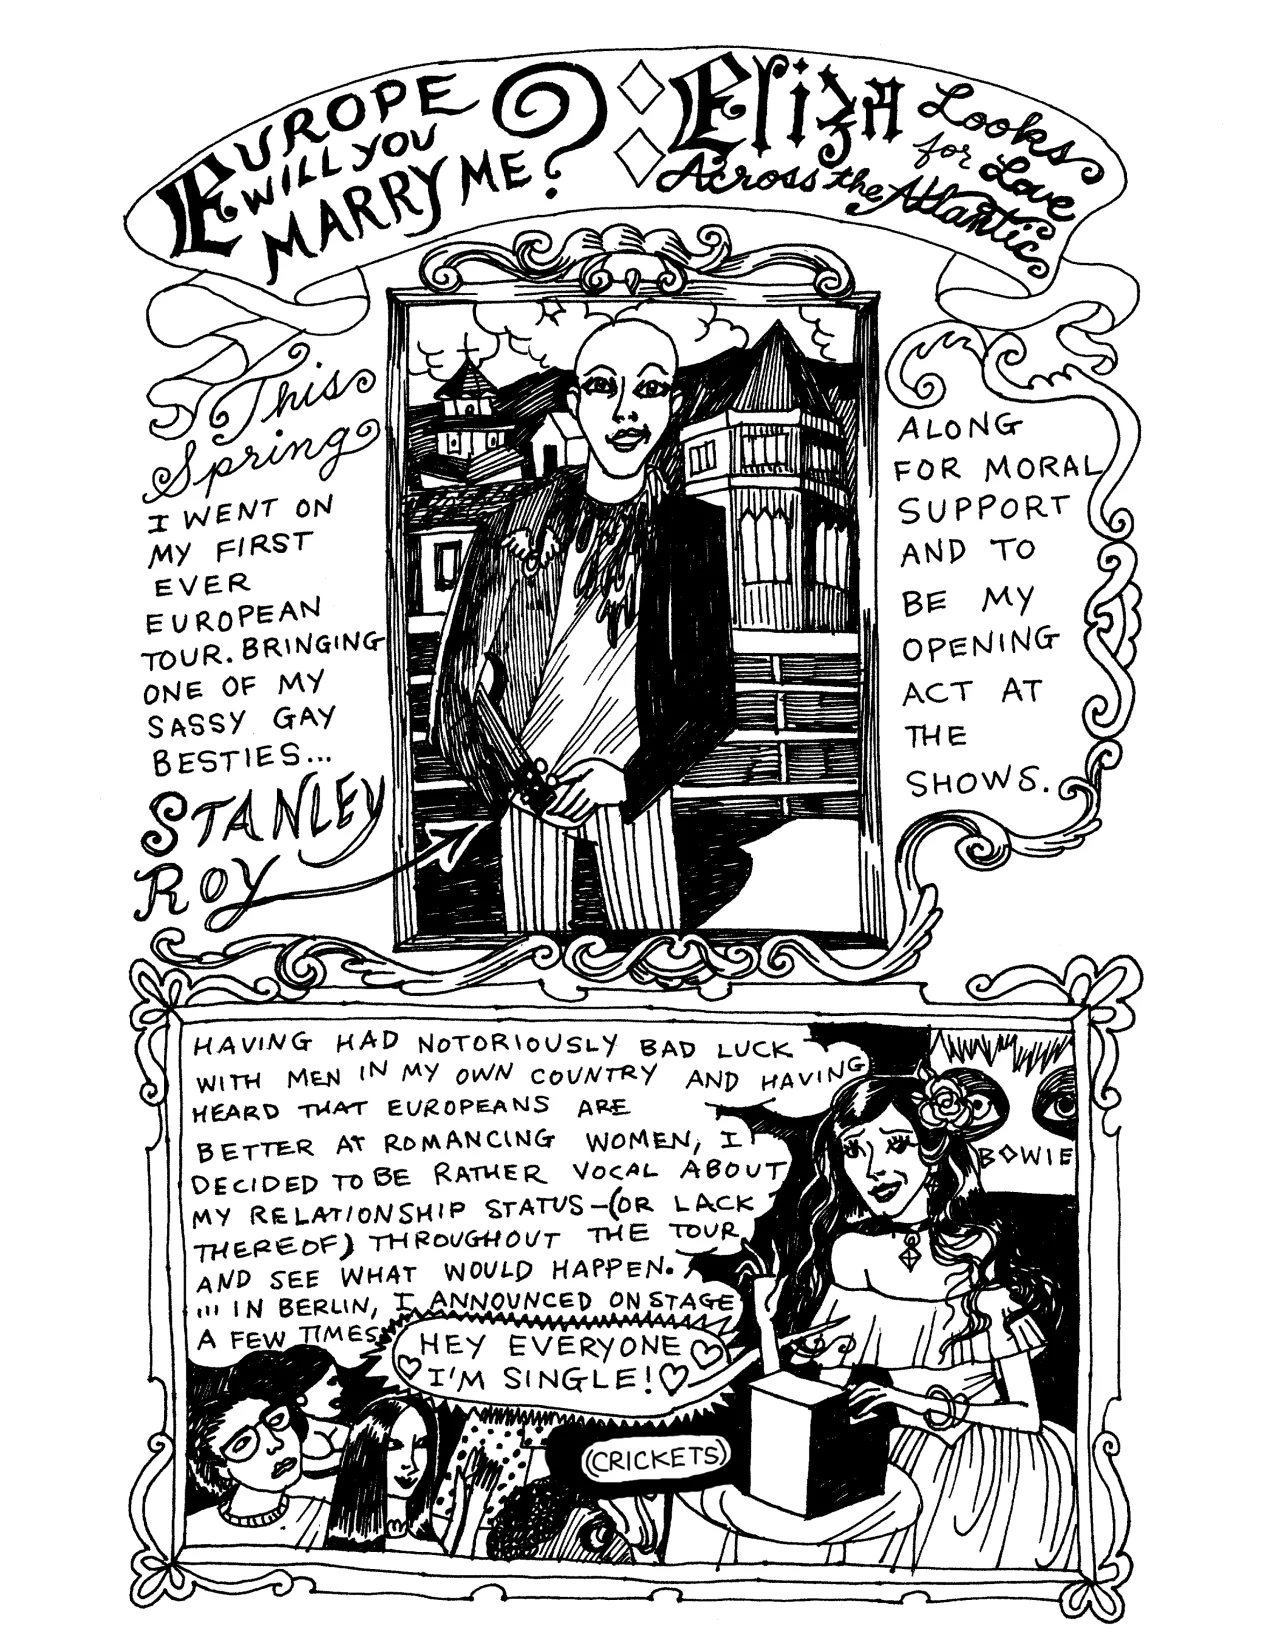 EUROPE
WILL YOU
MARRY ME?
Eliza Looks
for Love
Across the Atlantic
This
Spring
I WENT ON
MY FIRST
EVER
EUROPEAN
TOUR. BRINGING
ONE OF MY
SASSY GAY
BESTIES...
STANLEY
ROY
ALONG
FOR MORAL
SUPPORT
AND TO
BE MY
OPENING
ACT AT
THE
SHOWS.
HAVING HAD NOTORIOUSLY BAD LUCK
WITH MEN IN MY OWN COUNTRY AND HAVING
HEARD THAT EUROPEANS ARE
BETTER AT ROMANCING WOMEN, I
DECIDED TO BE RATHER VOCAL ABOUT
MY RELATIONSHIP STATUS-(OR LACK
THEREOF) THROUGHOUT THE TOUR
AND SEE WHAT WOULD HAPPEN.
... IN BERLIN, I ANNOUNCED ON STAGE
A FEW TIMES
HEY EVERYONE
I'M SINGLE!
(CRICKETS)
BOWIE